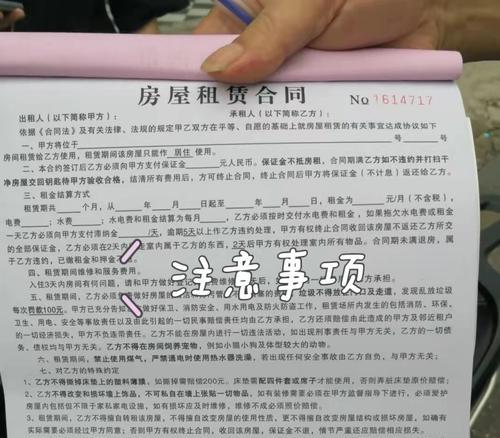 房屋租赁合同
No 1614717
出租人（以下简称甲方）：
承租人（以下简称乙方）：
依据《合同法》及有关法律、法规的规定甲乙双方在平等、自愿的基础上就房屋租赁的有关事宜达成协议如下
一、甲方将位于
房间租给乙方使用，租赁期间该房屋只能作 居住 使用。
二、本合约签订后乙方须向甲方支付保证金 元人民币。保证金不抵房租，合同期满乙方如不违约并打扫干
净房屋交回钥匙待甲方验收合格，结清所有费用后，方可终止合同，终止合同后甲方将保证金（不计息）返还给乙方。
三、租金结算方式
租赁期共 个月，从 年 月 日起至 年 月 日，租金为 元/月（不含税），
电费 ；水费 ；水电费和租金结算为每月 ，乙方必须按时交付水电费和租金，如果拖欠水电费或租金
一天乙方必须向甲方支付滞纳金 /天，逾期5天以上作乙方违约处理，甲方有权终止合同收回房屋不返还乙方所交
的全部保证金，乙方必须在2天内 室内属于乙方的东西，2天后甲方有权处理室内所有物品。合同期未满退房，属
于乙方违约，已缴租金和押金
四、租赁期间维修和服务费用。
入住3天内房间有任何问题，请和甲方做好登记
注意事项
五、租赁期间，乙方必须 做好房屋 垃圾不得 及走道，发现乱放垃圾
每次罚款100元。甲方已充分告知 做好保卫、消防安全、用水用电及防火防盗工作，租赁场所内发生的包括消防、环保、
卫生、用电、安全等事故责任以及由此引起的一切民事赔偿责任均由乙方承担，乙方还须赔偿由此造成的甲方及邻近租户
的一切经济损失，甲方不负连带责任。乙方不能在房屋内进行一切违法活动，如出现刑事责任与甲方无关，乙方的一切债
务、债权均与甲方无关。乙方不得在房间饲养宠物，例如小猫小狗及体型较大的动物。
六、租赁期间，禁止使用煤气，严禁通电时使用热水器洗澡，若出现任何安全事故由乙方自负，与甲方无关；
七、对乙方的特殊约定
1、乙方不得撕掉床垫上的塑料薄膜，如撕掉需赔偿200元。床垫需配四件套或席子才能使用，否则弄脏床垫原价赔偿；
2、乙方不得改变和损坏墙上饰品，不可私自在墙上张贴一切物品，如有装修需要必须在甲方监督指导下进行，必须爱护
房屋内包括但不限于家私家电设施，如有损坏应及时维修，维修不成必须照价赔偿；
3、租赁期间，乙方不得擅自转租该房屋，不得擅自改变房屋的使用性质，更不得擅自改变房屋结构或损坏房屋，如确有
实际需要必须经过甲方同意；否则甲方有权终止合同，收回房屋，保证金不退，情节严重还须赔偿相关损失。